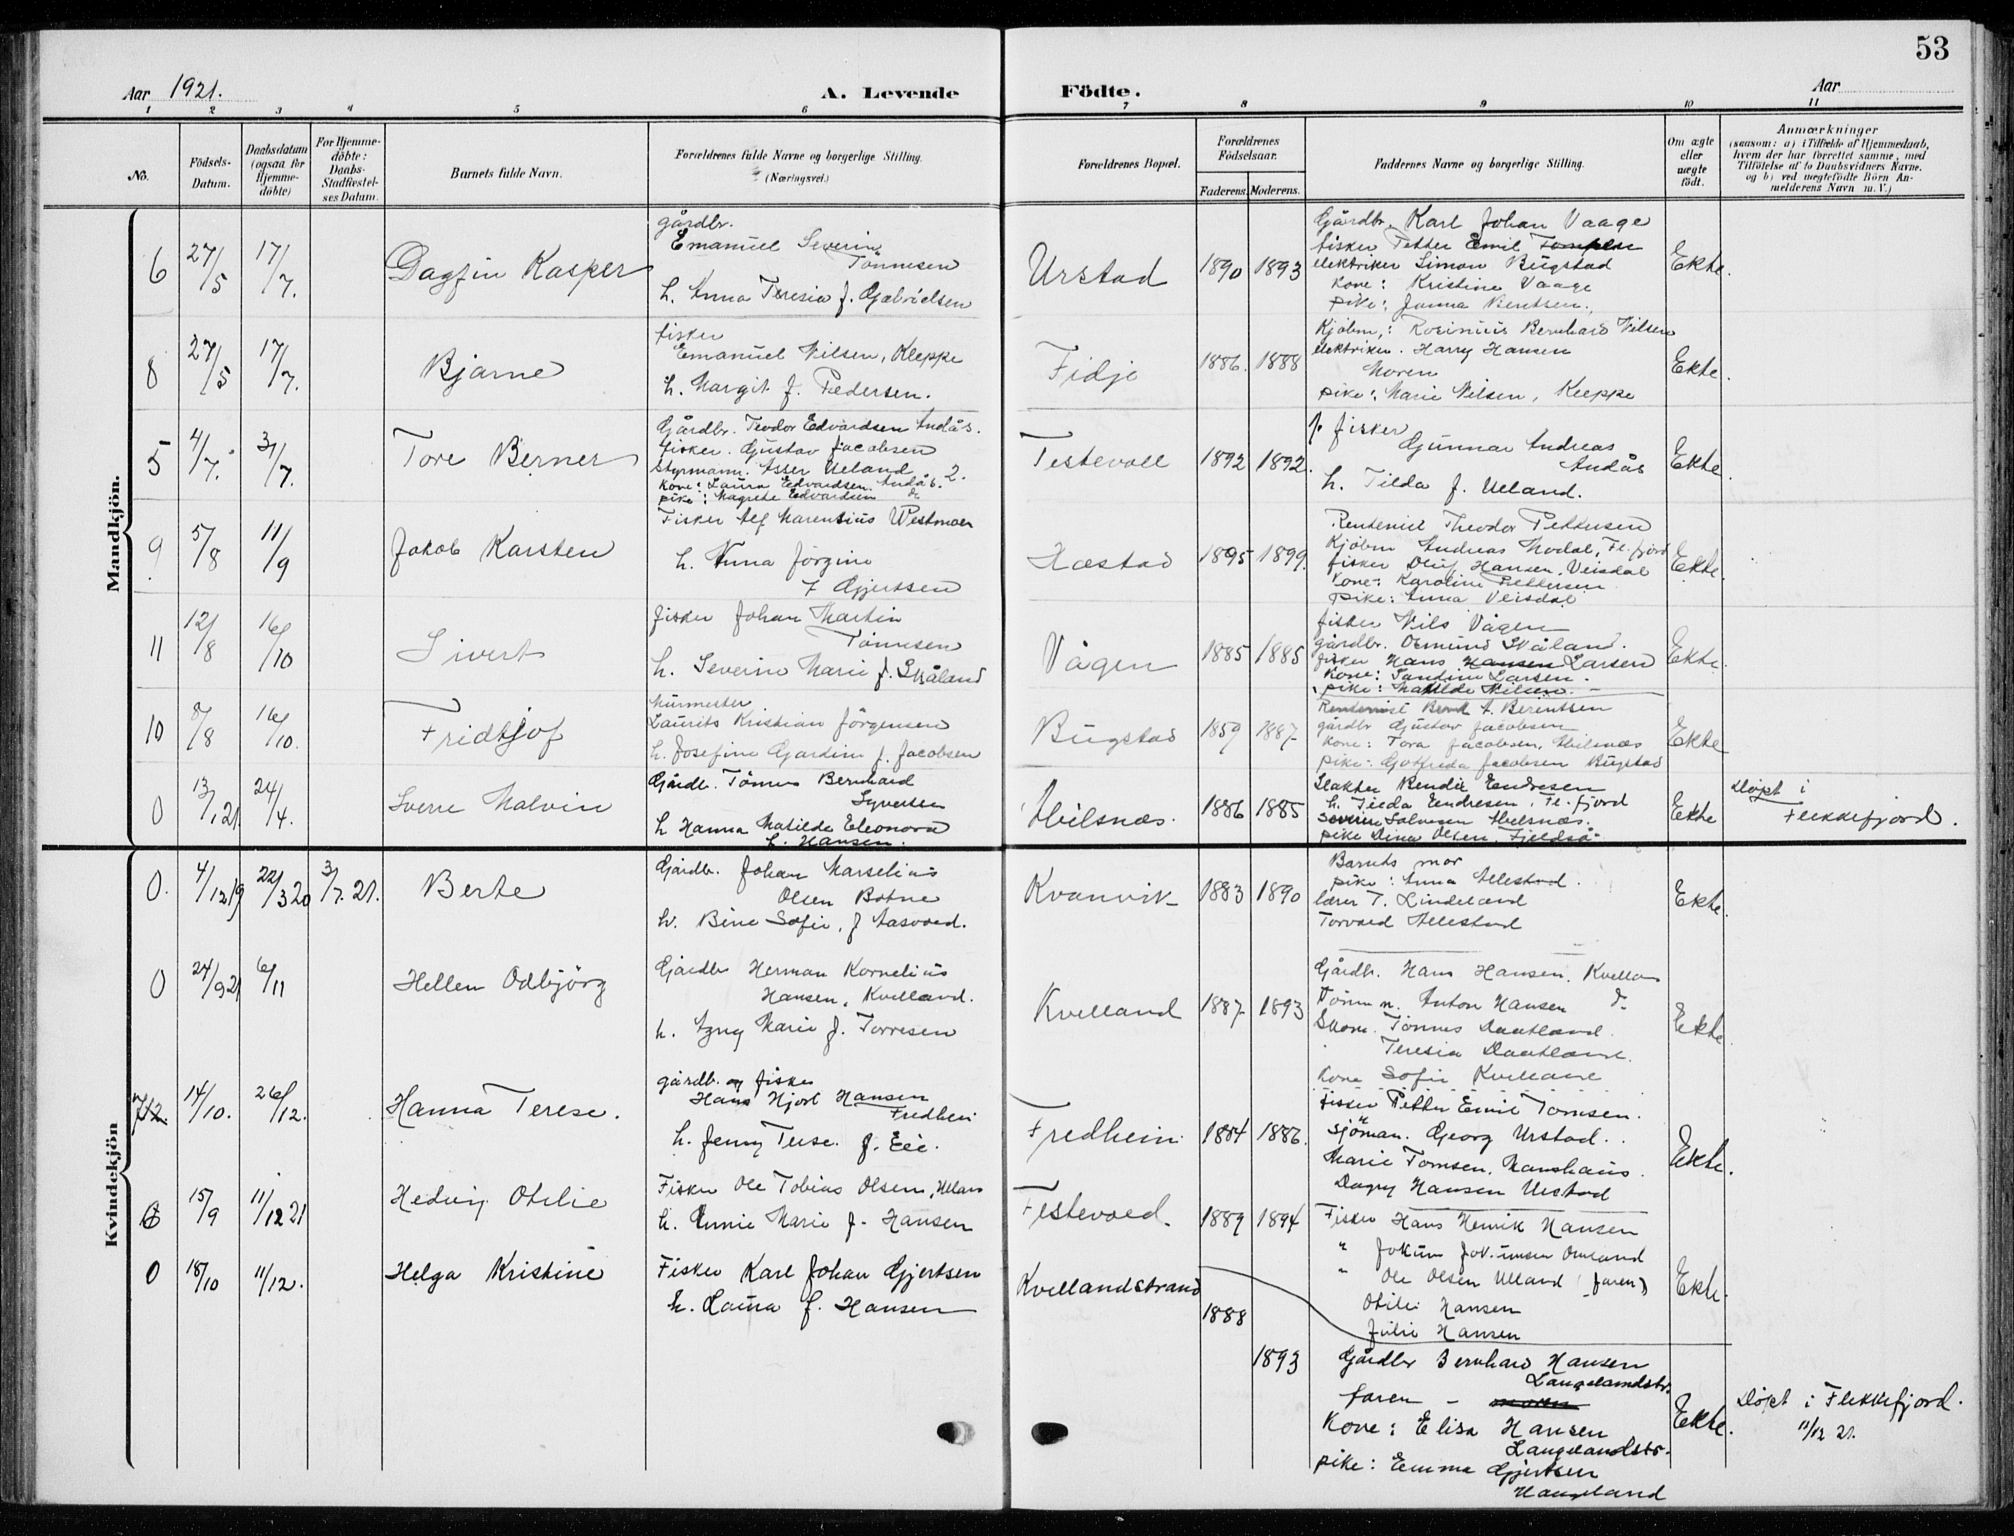 53
Aar 1921.
A. Levende Födte.
Aar
1 2 3 4 5 6 7 8 9 10 11
No.
Födsels-Datum.
Daabsdatum (ogsaa for Hjemme-döbte)
For Hjemme-döbte: Daabs-Stadfæstel-ses Datum.
Barnets fulde Navn.
Forældrenes fulde Navne og borgerlige Stilling. (Næringsvei.)
Forældrenes Bopæl.
Forældrenes Födselsaar.
Faderens. Moderens.
Faddernes Navne og borgerlige Stilling.
Om ægte eller uægte födt.
Anmærkninger
(saasom: a) i Tilfælde af Hjemmedaab,
hvem der har forrettet samme, med
Tilföielse af to Daabsvidners Navne.
og b) ved uægtefödte Börn An-
melderens Navn m. V.)
Mandkjön.
6 27/5 17/7. Dagfin Kasper
gårdbr.
Emanuel Severin
Tönnesen
h. Anna Teresia f. Gabrielsen
Urstad 1890 1893
Gårdbr. Karl Johan Vaage
fisker Petter Emil Tomsen
elektriker Simon Bugstad
Kone: Kristine Vaage
pike: Janna Bentsen.
Ekte.
8 27/5 17/7. Bjarne
fisker
Emanuel Nilsen, Kleppe
h. Margit f. Pedersen.
Fidje 1886. 1888
Kjøbm.: Rosinius Bernhard Nilsen
elektriker. Harry Hansen
Moren
pike: Marie Nilsen, Kleppe
Ekte.
5 4/7. 3/7. Tore Berner
Gårdbr. Teodor Edvardsen Andås.
fisker. Gustav Jacobsen
Styrmann. Asser Ueland
Kone: Laura Edvardsen. Andås. 2.
pike: Magrete Edvardsen do
Testevoll 1892 1892.
f. fisker
Gunnar Andreas
Andås
h. Tilda f. Ueland.
Ekte
9 5/8 11/9 Jakob Karsten
Fisker Alf Marensius Westmoen
h. Anna Jörgine
f Gjertsen
Hæstad 1895 1899.
Rentenist Theodor Pettersen
Kjöbm Andreas Modal, Fl.fjord
fisker Oluf Hansen, Veisdal
Kone: Karoline Pettersen
pike: Anna Veisdal
Ekte.
11 12/8 16/10 Sivert
fisker Johan Martin
Tönnesen
h. Severine Marie f. Skåland
Vågen 1885 1885
fisker Nils Vågen
gårdbr. Osmund Skåland.
fisker Hans Hansen Larsen
Kone: Tandine Larsen.
pike: Matilde Nilsen.
Ekte.
10 8/8 16/10. Fridtjof
Murmester
Laurits Kristian Jörgensen
h. Josefine Gardine f. Jacobsen
Bugstad 1859 1887
Rentenist Bernt A. Berentsen
gårdbr Gustav Jacobsen
Kone: Tora Jacobsen, Abilsnæs
pike: Gotfrida Jacobsen Bugstad
Ekte
0 13/1 21 24/4. Sverre Malvin
Gårdb. Tönnes Bernhard
Syvertsen
h Hanna Matilde Eleonora
f. Hansen.
Abilsnæs. 1886 1885
Slakter Bendix Endresen
h. Tilda Endresen, Fl.fjord
Severine Salvesen Abelsnæs.
pike Dina Olsen. Fjeldså
Ekte
Döpt i
Flekkefjord.
Kvindekjön
0. 4/12 19 22/3 20 3/7. 21. Berte
Gårdbr. Johan Marselius
Olsen Botne
h. Bine Sofie, f Aasvoed.
Kvanvik 1883 1890
Barnets mor
pike: Anna Allestad.
lærer T. Lindeland
Torvald Allestad
Ekte.
0 24/9 21 6/11 Hellen Odbjörg
Gårdbr Herman Kornelius
Hansen, Kvelland.
h. Agny Marie f. Torresen
Kvelland 1887 1893
Gårdb. Hans Hansen. Kvelland
Tömm. Anton Hansen do
Skom. Tönnes Daatland.
Teresia Daatland.
Kone Sofie Kvelland
Ekte
7 12 14/10. 26/12. Hanna Terese.
gårdb. og fisker
Hans Hjort Hansen
Fredheim
h. Jenny Terese. f. Eie.
Fredheim. 1884 1886.
fisker Petter Emil Tomsen.
Sjöman. Georg Urstad.
Marie Tomsen, Manshaus.
Dagny Hansen Urstad
Ekte.
0 15/9 11/12 21 Hedvig Otelie
Fisker Ole Tobias Olsen, Ulland
h. Annie Marie f. Hansen
Festevoed. 1889 1894
Fisker Hans Henrik Hansen
" Jokum Omland
" Ole Olsen Ulland (faren)
Otilie Hansen
Julie Hansen
Ekte.
0 18/10 11/12. Helga Kristine
Fisker Karl Johan Gjertsen
h. Laura f. Hansen
Kvellandstrand
1888
1893
Gårdbr Bernhard Hansen
Langelandstr.
faren - moren
Kone: Elisa Hansen
Langelandstr.
pike: Emma Gjertsen
Haugeland
Ekte.
Döpt i Flekkefjord.
11/12 21.